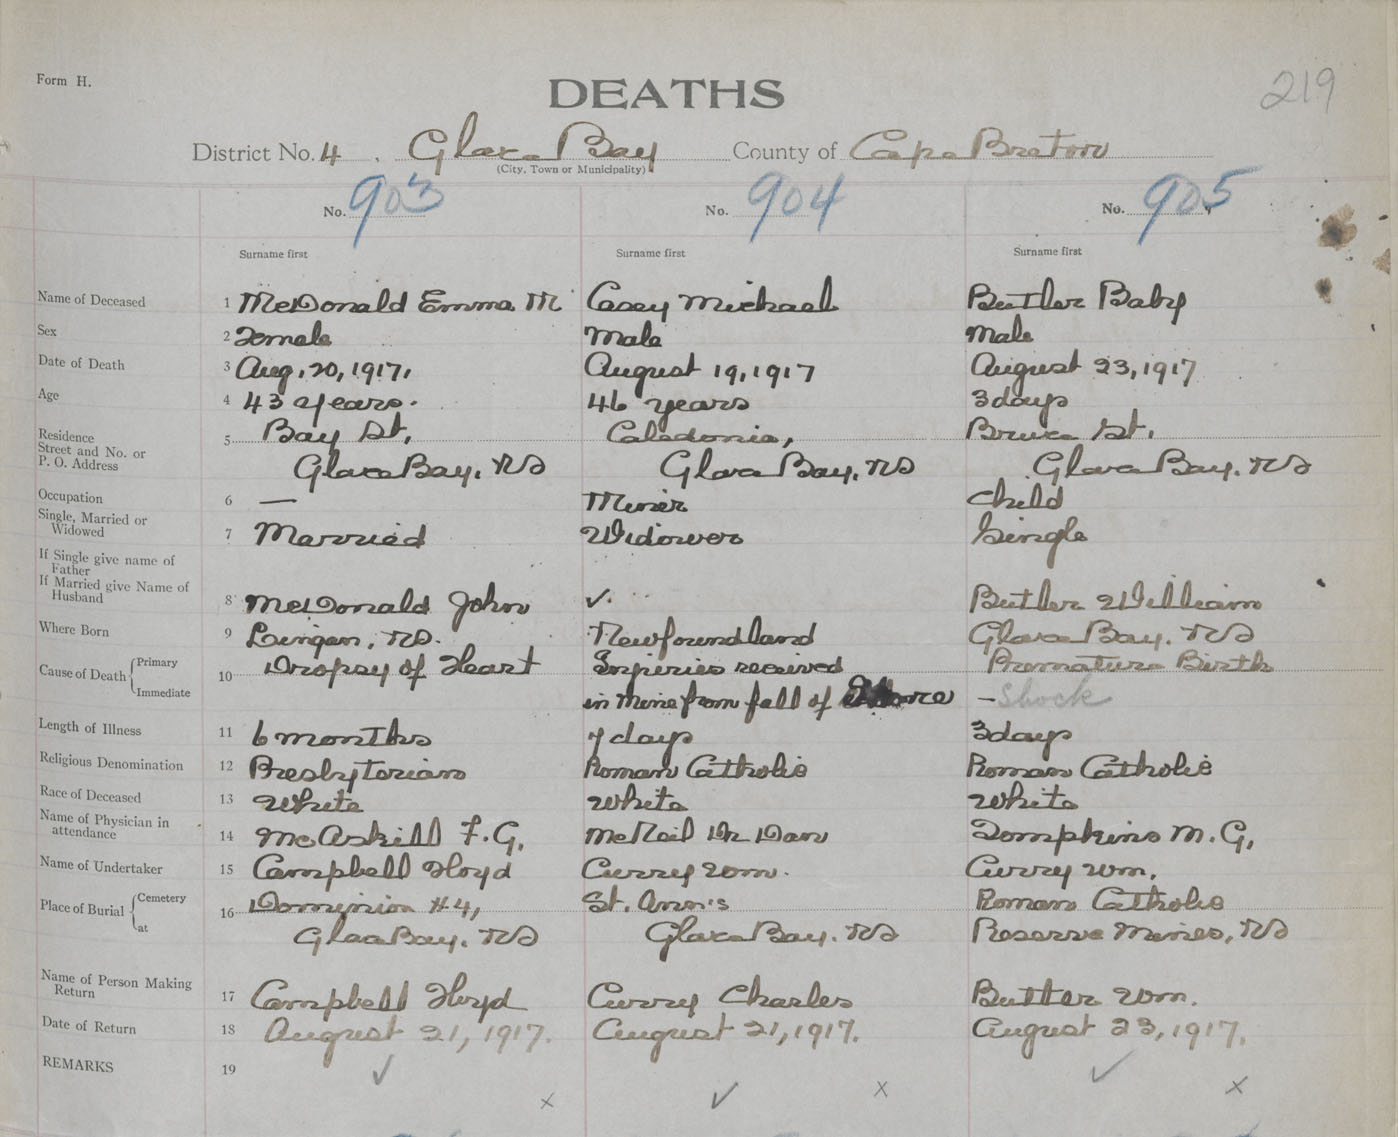 Form H.
DEATHS
219
District No. 4. Glace Bay County of Cape Breton
(City, Town or Municipality)
No. 903 No. 904 No. 905
Surname first Surname first Surname first
Name of Deceased 1 McDonald Emma M Casey Michael Butler Baby
Sex 2 Female Male Male
Date of Death 3 Aug. 20, 1917. August 19, 1917 August 23, 1917
Age 4 43 years. 46 years 3 days
Residence Street and No. or P. O. Address 5 Bay St, Caledonia, Bruce St.
Glace Bay, NS Glace Bay, NS Glace Bay, NS
Occupation 6 — Miner Child
Single, Married or Widowed 7 Married Widower Single
If Single give name of Father
If Married give Name of Husband 8 McDonald John ✓. Butler William
Where Born 9 Lingan, NS. Newfoundland Glace Bay. NS
Cause of Death { Primary 10 Dropsy of Heart Injuries received Premature Birth
Immediate in mine from fall of - Shock
Length of Illness 11 6 months 7 days 3 days
Religious Denomination 12 Presbyterian Roman Catholic Roman Catholic
Race of Deceased 13 White White White
Name of Physician in attendance 14 McAskill F. G, McNeil Dr Dan Tompkins M. G,
Name of Undertaker 15 Campbell Floyd Curry Wm. Curry Wm.
Place of Burial { Cemetery 16 Dominion #4, St. Ann's Roman Catholic
at Glace Bay. NS Glace Bay. NS Reserve Mines, NS
Name of Person Making Return 17 Campbell Floyd Curry Charles Butler Wm.
Date of Return 18 August 21, 1917. August 21, 1917. August 23, 1917.
REMARKS 19 ✓ ✓ ✓
x x x